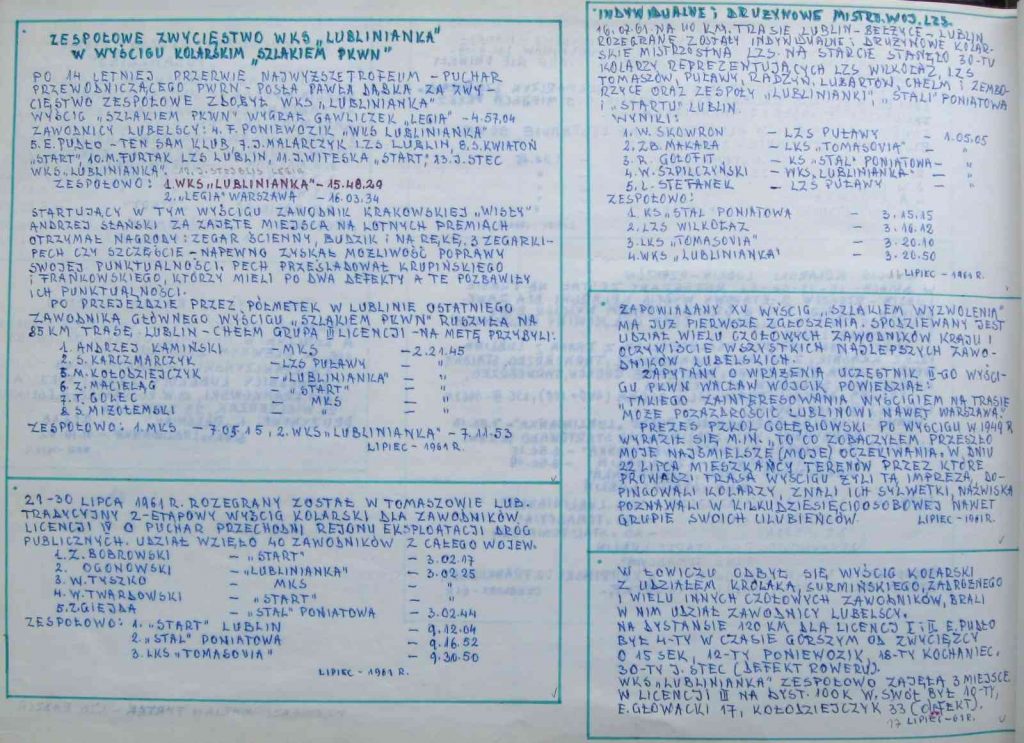 ZESPOŁOWE ZWYCIĘSTWO WKS „LUBLINIANKA"
W WYŚCIGU KOLARSKIM „SZLAKIEM PKWN"
PO 14 LETNIEJ PRZERWIE NAJWYŻSZE TROFEUM - PUCHAR
PRZEWODNICZĄCEGO PWRN - POSŁA PAWŁA DĄBKA ZA ZWY-
CIĘSTWO ZESPOŁOWE ZDOBYŁ WKS „LUBLINIANKA"
WYŚCIG „SZLAKIEM PKWN" WYGRAŁ GAWLICZEK „LEGIA" - 4.57.04
ZAWODNICY LUBELSCY: 4. F. PONIEWOZIK „WKS LUBLINIANKA"
5. E. PUDŁO - TEN SAM KLUB, 7. J. MALARCZYK LZS LUBLIN, 8. S. KWIATOŃ
„START", 10. M. FURTAK LZS LUBLIN, 11. J. WITESKA „START", 13. J. STEC
WKS „LUBLINIANKA".
ZESPOŁOWO: 1. WKS „LUBLINIANKA" - 15.48.29
2. „LEGIA" WARSZAWA - 16.03.34
STARTUJĄCY W TYM WYŚCIGU ZAWODNIK KRAKOWSKIEJ „WISŁY"
ANDRZEJ SŁAŃSKI ZA ZAJĘTE MIEJSCA NA LOTNYCH PREMIACH
OTRZYMAŁ NAGRODY: ZEGAR ŚCIENNY, BUDZIK I NA RĘKĘ, 3 ZEGARKI-
PECH CZY SZCZĘŚCIE - NAPEWNO ZYSKAŁ MOŻLIWOŚĆ POPRAWY
SWOJEJ PUNKTUALNOŚCI. PECH PRZEŚLADOWAŁ KRUPIŃSKIEGO
I FRANKOWSKIEGO, KTÓRZY MIELI PO DWA DEFEKTY A TE POZBAWIŁY
ICH PUNKTUALNOŚCI.
PO PRZEJEŹDZIE PRZEZ PÓŁMETEK W LUBLINIE OSTATNIEGO
ZAWODNIKA GŁÓWNEGO WYŚCIGU „SZLAKIEM PKWN" RUSZYŁA NA
85 KM TRASĘ LUBLIN - CHEŁM GRUPA III LICENCJI - NA METĘ PRZYBYLI:
1. ANDRZEJ KAMIŃSKI - MKS - 2.21.45
2. S. KARCZMARCZYK - LZS PUŁAWY - "
5. M. KOŁODZIEJCZYK - „LUBLINIANKA" - "
6. Z. MACIELĄG - „START" - "
7. T. GOLEC - MKS - "
8. S. MIZOŁEMSKI - " - "
ZESPOŁOWO: 1. MKS - 7.05.15, 2. WKS „LUBLINIANKA" - 7.11.53
LIPIEC - 1961 R.
27-30 LIPCA 1961 R. ROZEGRANY ZOSTAŁ W TOMASZOWIE LUB.
TRADYCYJNY 2-ETAPOWY WYŚCIG KOLARSKI DLA ZAWODNIKÓW
LICENCJI IV O PUCHAR PRZECHODNI REJONU EKSPLOATACJI DRÓG
PUBLICZNYCH. UDZIAŁ WZIĘŁO 40 ZAWODNIKÓW Z CAŁEGO WOJEW.
1. Z. BOBROWSKI - „START" - 3.02.17
2. OGONOWSKI - „LUBLINIANKA" - 3.02.25
3. W. TYSZKO - MKS - "
4. W. TWARDOWSKI - „START" - "
5. ZGIEJDA - „STAL" PONIATOWA - 3.02.44
ZESPOŁOWO: 1. „START" LUBLIN - 9.12.04
2. „STAL" PONIATOWA - 9.16.52
3. LKS „TOMASOVIA" - 9.30.50
LIPIEC - 1961 R.
INDYWIDUALNE I DRUŻYNOWE MISTRZ. WOJ. LZS.
16.07.61 NA 40 KM. TRASIE LUBLIN - BEŁŻYCE - LUBLIN
ROZEGRANE ZOSTAŁY INDYWIDUALNE I DRUŻYNOWE KOLAR-
SKIE MISTRZOSTWA LZS. NA STARCIE STANĘŁO 30-TU
KOLARZY REPREZENTUJĄCYCH LZS WILKOŁAZ, LZS
TOMASZÓW, PUŁAWY, RADZYŃ, LUBARTÓW, CHEŁM I ZEMBO-
RZYCE ORAZ ZESPOŁY „LUBLINIANKI", „STALI" PONIATOWA
I „STARTU" LUBLIN.
WYNIKI:
1. W. SKOWRON - LZS PUŁAWY - 1.05.05
2. ZB. MAKARA - LKS „TOMASOVIA" - "
3. R. GOŁOFIT - KS „STAL" PONIATOWA - "
4. W. SZPILCZYŃSKI - WKS „LUBLINIANKA" - "
5. L. STEFANEK - LZS PUŁAWY - "
ZESPOŁOWO:
1. KS „STAL PONIATOWA - 3.15.15
2. LZS WILKOŁAZ - 3.16.12
3. LKS „TOMASOVIA" - 3.20.10
4. WKS „LUBLINIANKA" - 3.20.50
LIPIEC - 1961 R.
ZAPOWIADANY XV WYŚCIG „SZLAKIEM WYZWOLENIA"
MA JUŻ PIERWSZE ZGŁOSZENIA. SPODZIEWANY JEST
UDZIAŁ WIELU CZOŁOWYCH ZAWODNIKÓW KRAJU I
OCZYWIŚCIE WSZYSTKICH NAJLEPSZYCH ZAWO-
DNIKÓW LUBELSKICH.
ZAPYTANY O WRAŻENIA UCZESTNIK II-GO WYŚCI-
GU PKWN WACŁAW WÓJCIK POWIEDZIAŁ:
„TAKIEGO ZAINTERESOWANIA WYŚCIGIEM NA TRASIE
MOŻE POZAZDROŚCIĆ LUBLINOWI NAWET WARSZAWA."
PREZES PZKOL GOŁĘBIOWSKI PO WYŚCIGU W 1949 R
WYRAZIŁ SIĘ M.IN. „TO CO ZOBACZYŁEM PRZESZŁO
MOJE NAJŚMIELSZE (MOJE) OCZEKIWANIA. W DNIU
22 LIPCA MIESZKAŃCY TERENÓW PRZEZ KTÓRE
PROWADZI TRASA WYŚCIGU ŻYLI TĄ IMPREZĄ, DO-
PINGOWALI KOLARZY, ZNALI ICH SYLWETKI, NAZWISKA
POZNAWALI W KILKUDZIESIĘCIOOSOBOWEJ NAWET
GRUPIE SWOICH ULUBIEŃCÓW. LIPIEC - 1961 R.
W ŁOWICZU ODBYŁ SIĘ WYŚCIG KOLARSKI
Z UDZIAŁEM KRÓLAKA, SURMIŃSKIEGO, ZADROŻNEGO
I WIELU INNYCH CZOŁOWYCH ZAWODNIKÓW, BRALI
W NIM UDZIAŁ ZAWODNICY LUBELSCY.
NA DYSTANSIE 120 KM DLA LICENCJI I i II E. PUDŁO
BYŁ 4-TY W CZASIE GORSZYM OD ZWYCIĘZCY
O 15 SEK, 12-TY PONIEWOZIK, 18-TY KOCHANIEC.
30-TY J. STEC (DEFEKT ROWERU).
WKS „LUBLINIANKA" ZESPOŁOWO ZAJĘŁA 3 MIEJSCE
W LICENCJI III NA DYST. 100 K W. SWÓŁ BYŁ 10-TY,
E. GŁOWACKI 17, KOŁODZIEJCZYK 33 (DEFEKT).
17 LIPIEC - 61 R.